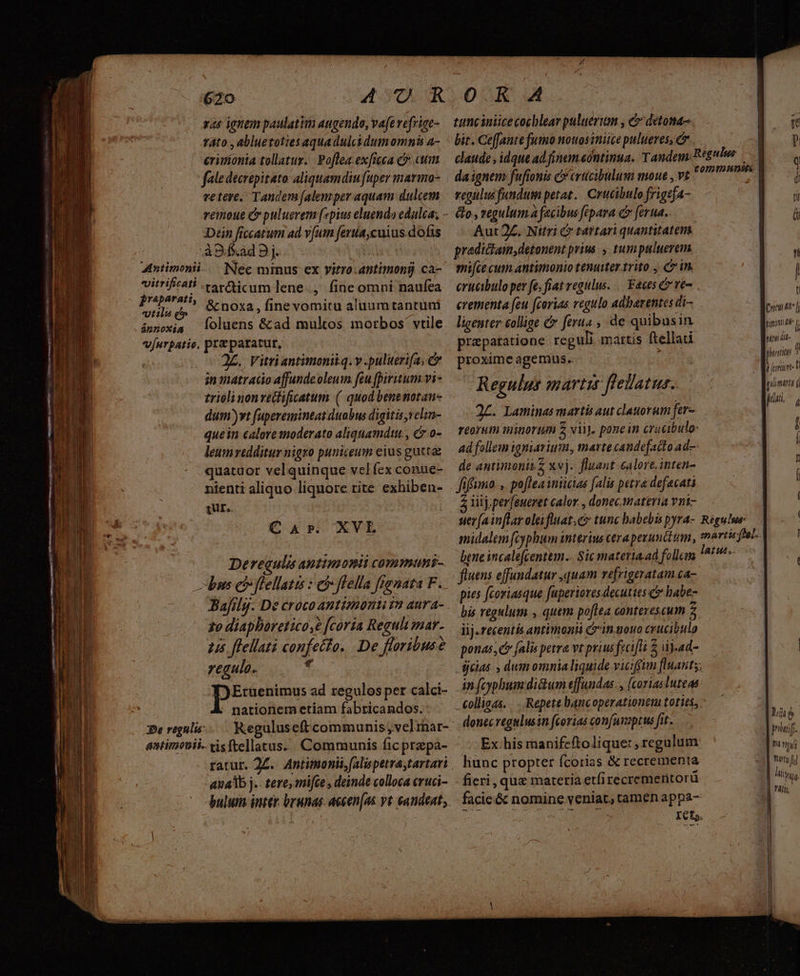 620 AVRORA
vas ignem paulatim augendo, vase refrige-
rato, ablue toties aqua dulci dum omnis a-
crimonia tollatur. Postea exsicca & cum
sale decrepitato aliquamdiu super marmo-
re tere. Tandem salem per aquam dulcem
remoue & puluerem sæpius eluendo edulca;
Dein siccatum ad vsum serua, cuius dosis
à Э ß. ad Э j.
Antimonii vitrificati præparati, vtilis & innoxia vsurpatio.
Nec minus ex vitro antimonij ca-
tarcticum lene, sine omni nausea
& noxa, sine vomitu aluum tantum
soluens & ad multos morbos vtile
præparatur,
♃. Vitri antimonii q. v. puluerisa, &
in matracio affunde oleum seu spiritum vi-
trioli non rectificatum (quod bene notan-
dum) vt superemineat duobus digitis, relin-
que in calore moderato aliquamdiu, & o-
leum redditur nigro puniceum eius guttæ
quatuor vel quinque vel sex conue-
nienti aliquo liquore rite exhiben-
tur.
CAP. XVI.
De regulis antimonii communi-
bus & stellatis: & stella signata F.
Basilij. De croco antimonii in aura-
to diaphoretico, è scoria Reguli mar-
tis stellati confecto. De floribus è
regulo.
DEuenimus ad regulos per calci-
nationem etiam fabricandos.
De regulis antimonii.
Regulus est communis, vel mar-
tis stellatus. Communis sic præpa-
ratur. ♃. Antimonii, salis petræ, tartari
ana lb j. tere, misce, deinde colloca cruci-
bulum inter brunas accensas vt candeat,
tunc iniice cochlear puluerum, & detona-
bit. Cessante fumo nouos iniice pulueres, &
claude, idque ad finem continua. Tandem
da ignem fusionis & crucibulum moue, vt
Regulus communis
regulus fundum petat. Crucibulo frigefa-
cto, regulum à fæcibus separa & serua.
Aut ♃. Nitri & tartari quantitatem
prædictam, detonent prius, tum puluerem
misce cum antimonio tenuiter trito, & in
crucibulo per se, fiat regulus. Fæces & re-
crementa seu scorias regulo adhærentes di-
ligenter collige & serua, de quibus in
præparatione reguli martis stellati
proxime agemus.
Regulus martis stellatus.
♃. Laminas martis aut clauorum fer-
reorum minorum ℥ viij. pone in crucibulo
ad follem igniarium, marte candefacto ad-
de antimonii ℥ xvj. fluant calore inten-
sissimo, postea iniicias salis petræ defæcati
℥ iiij. perseueret calor, donec materia vni-
uersa instar olei fluat, & tunc habebis pyra-
midalem scyphum interius cera perunctum,
Regulus martis stellatus.
bene incalescentem. Sic materia ad follem
fluens effundatur, quam refrigeratam ca-
pies scoriasque superiores decuties & habe-
bis regulum, quem postea conteres cum ℥
iij. recentis antimonii & in nouo crucibulo
ponas, & salis petræ vt prius fecisti ℥ iij. ad-
iicias, dum omnia liquide vicissim fluant;
in scyphum dictum effundas, scorias luteas
colligas. Repete hanc operationem toties,
donec regulus in scorias consumptus sit.
Ex his manifesto liquet, regulum
hunc propter scorias & recrementa
fieri, quæ materia etsi recrementorū
facie & nomine veniat, tamen appa-
ret,